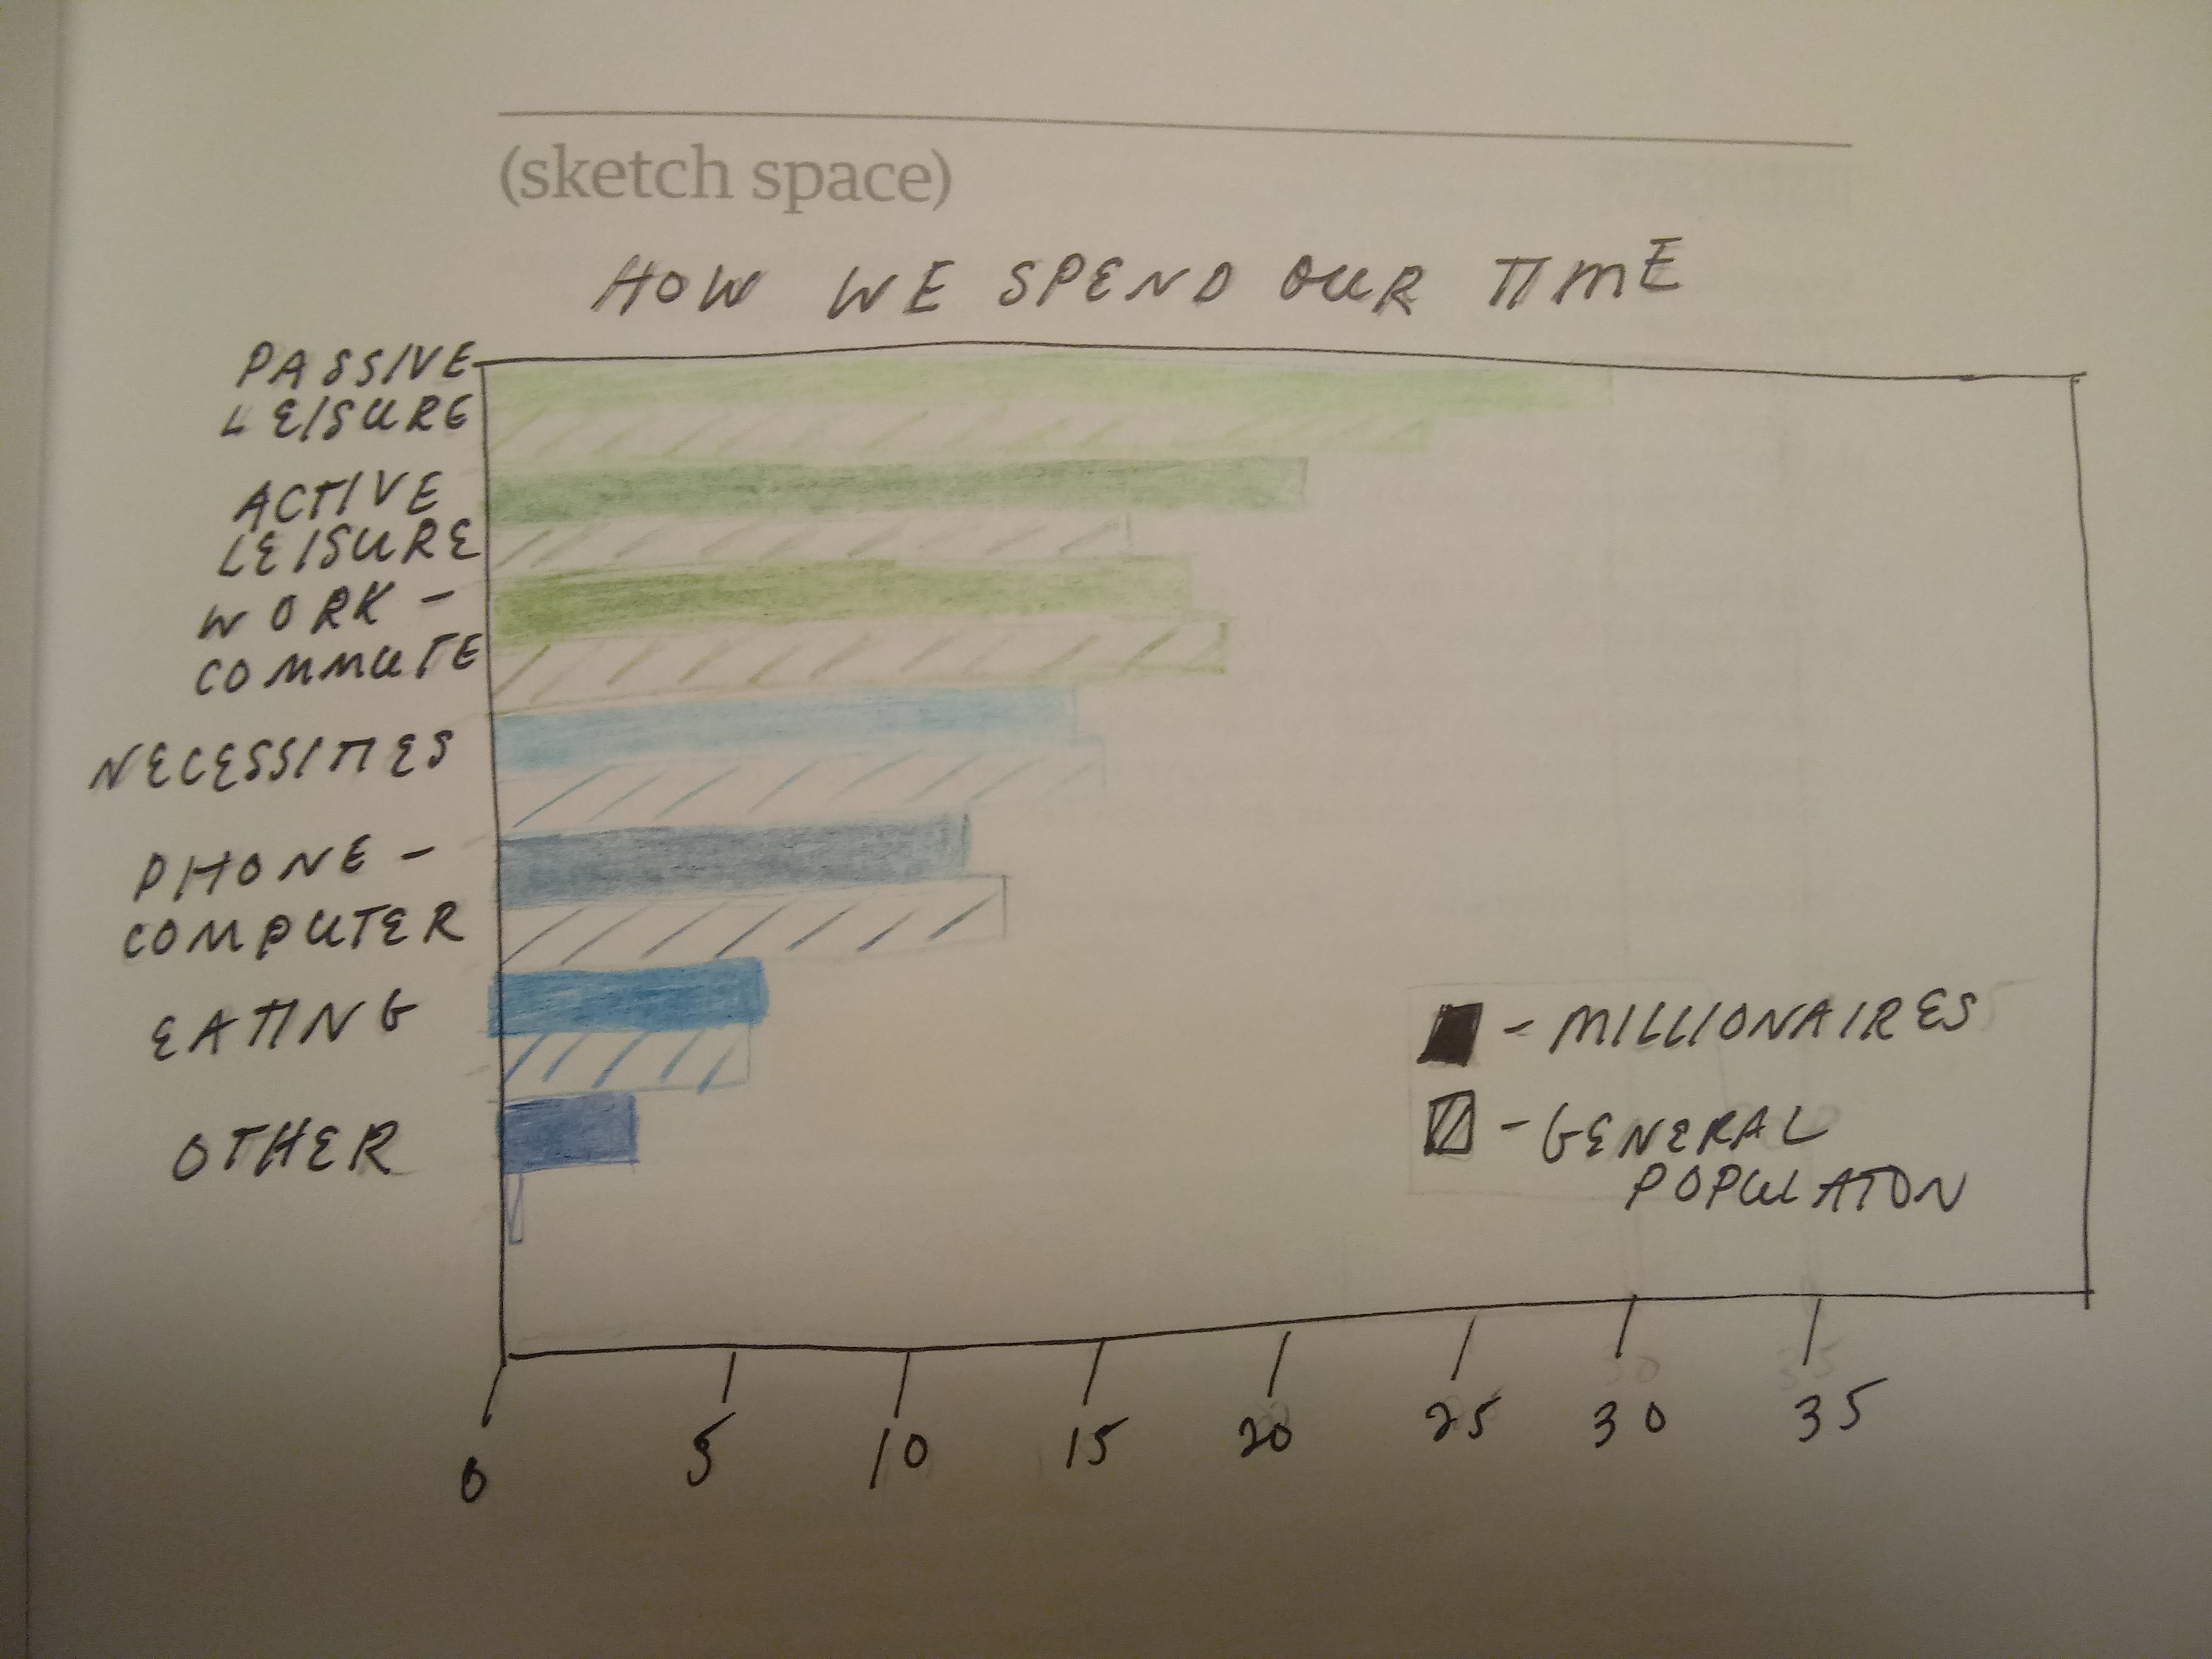 (sketch space)
HOW WE SPEND OUR TIME
PASSIVE
LEISURE
ACTIVE
LEISURE
WORK -
COMMUTE
NECESSITIES
PHONE -
COMPUTER
EATING
OTHER
- MILLIONAIRES
- GENERAL
POPULATON
0 5 10 15 20 25 30 35